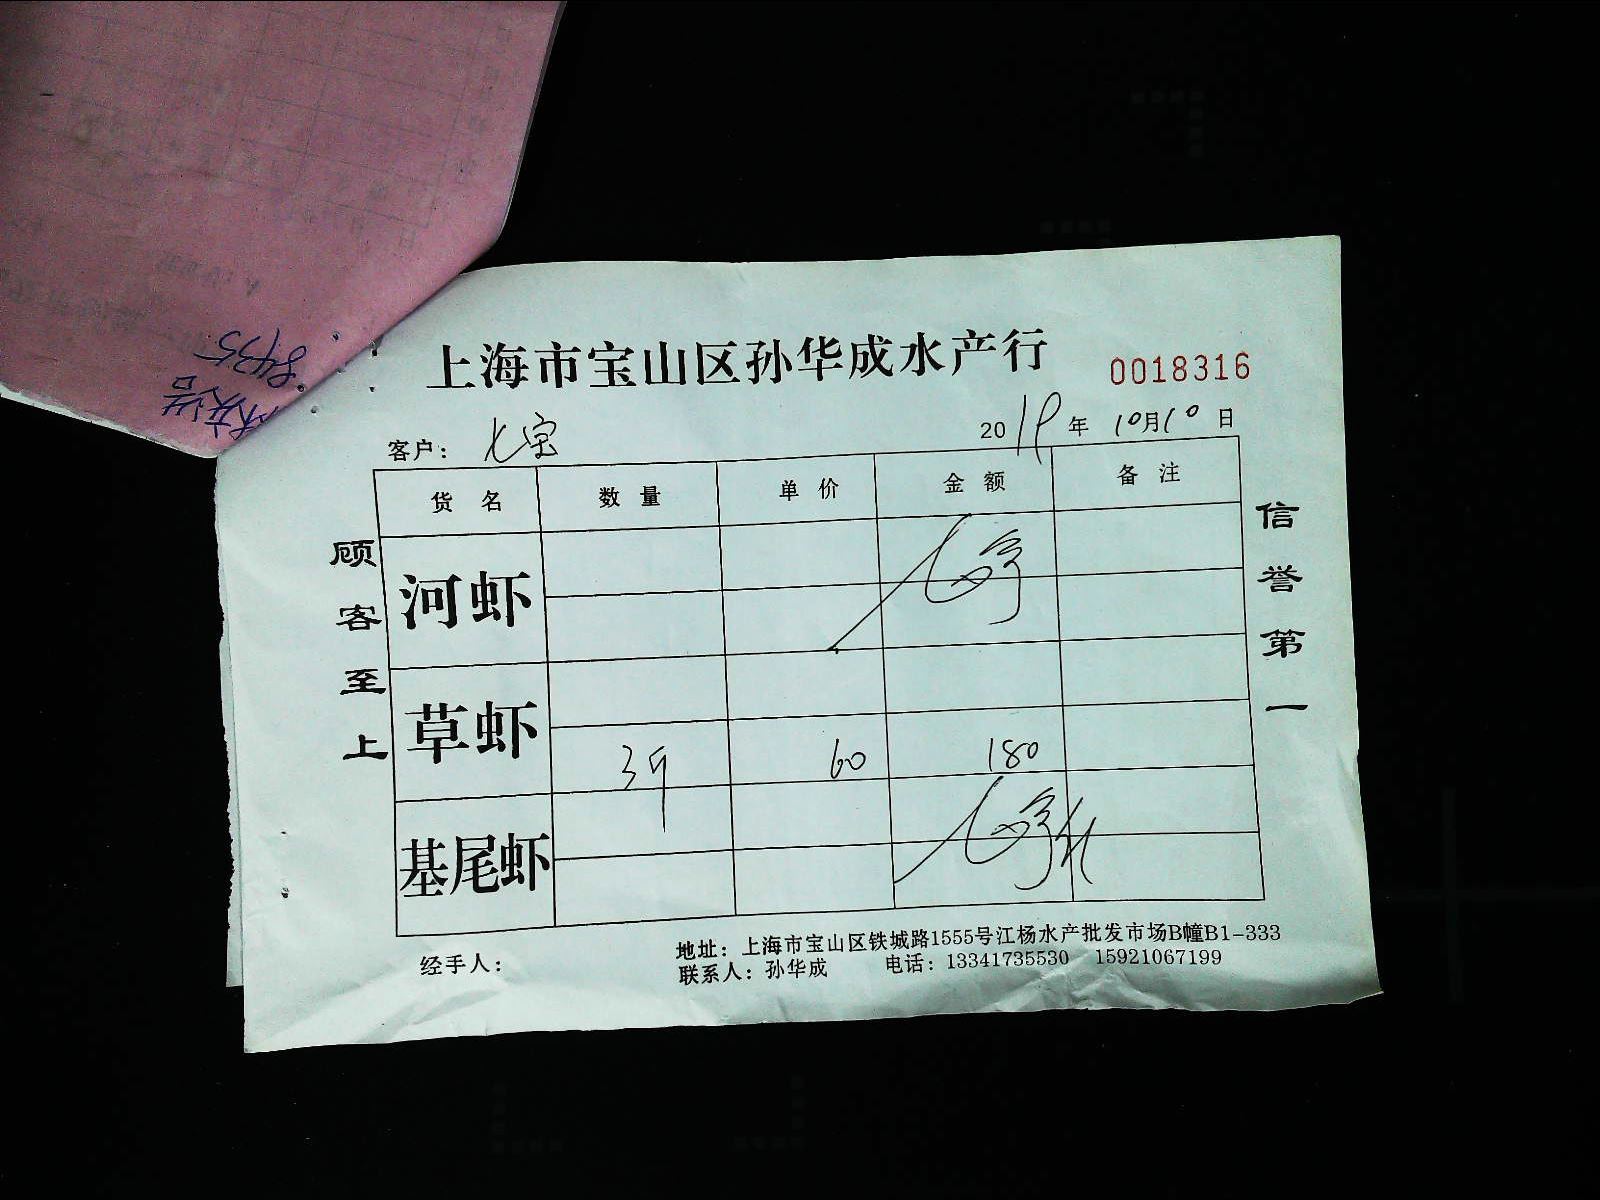 上海市宝山区孙华成水产行
0018316
客户：七宝
2019年10月10日
货名 数量 单价 金额 备注
河虾
草虾
3斤 60 180
基尾虾
顾客至上
信誉第一
经手人：
地址：上海市宝山区铁城路1555号江杨水产批发市场B幢B1-333
联系人：孙华成 电话：13341735530 15921067199
8435